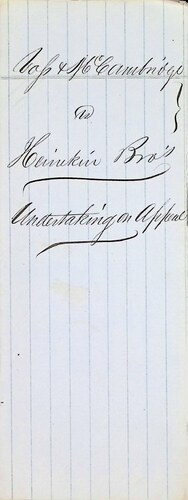 Voss & McCambridge
vs
Heinekin Bro's
Undertaking on Appeal